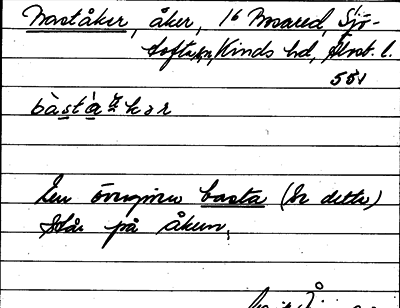 Baståker, åker, 16 Bosared, Sjö-
tofta sn, Kinds hd, Älvsb. l.
551
bàstå`kər
En övergiven basta (Se detta)
står på åkern.